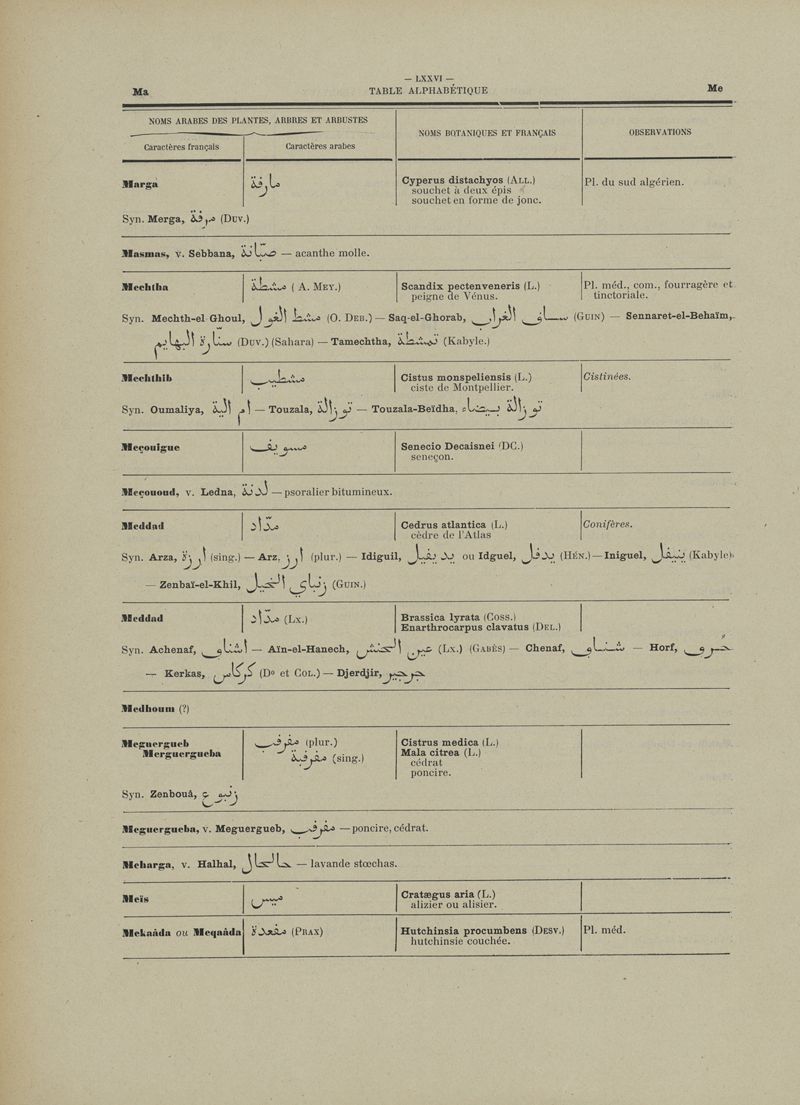 — LXXVI —
Ma TABLE ALPHABÉTIQUE Me
NOMS ARABES DES PLANTES, ARBRES ET ARBUSTES
NOMS BOTANIQUES ET FRANÇAIS
OBSERVATIONS
Caractères français Caractères arabes
Marga مارقة Cyperus distachyos (ALL.) Pl. du sud algérien.
souchet à deux épis
souchet en forme de jonc.
Syn. Merga, مرقة (DUV.)
Masmas, v. Sebbana, صبّانة — acanthe molle.
Mechtha مشطة ( A. MEY.) Scandix pectenveneris (L.) Pl. méd., com., fourragère et
peigne de Vénus. tinctoriale.
Syn. Mechth-el Ghoul, مشط الغول (O. DEB.) — Saq-el-Ghorab, ساق الغراب (GUIN) — Sennaret-el-Behaïm,
سنّارة البهايم (DUV.) (Sahara) — Tamechtha, تمشطة (Kabyle.)
Mechthib مشطيب Cistus monspeliensis (L.) Cistinées.
ciste de Montpellier.
Syn. Oumaliya, — Touzala, توزالة — Touzala-Beïdha, توزالة بيضاء
Meçouigue مسويق Senecio Decaisnei (DC.)
seneçon.
Meçououd, v. Ledna, لدنة — psoralier bitumineux.
Meddad مدّاد Cedrus atlantica (L.) Conifères.
cèdre de l'Atlas
Syn. Arza, ارزة (sing.) — Arz, ارز (plur.) — Idiguil, ou Idguel, يدقل (HÉN.) — Iniguel, (Kabyle).
— Zenbaï-el-Khil, زنباي الخيل (GUIN.)
Meddad مدّاد (LX.) Brassica lyrata (COSS.)
Enarthrocarpus clavatus (DEL.)
Syn. Achenaf, اشناف — Aïn-el-Hanech, عين الحنش (LX.) (GABÈS) — Chenaf, شناف — Horf, حرف
— Kerkas, كركاس (Do et COL.) — Djerdjir, جرجير
Medhoum (?)
Meguergueb مقرقب (plur.) Cistrus medica (L.)
Merguergueba مقرقبة (sing.) Mala citrea (L.)
cédrat
poncire.
Syn. Zenbouâ, زنبوع
Meguergueba, v. Meguergueb, مقرقب — poncire, cédrat.
Meharga, v. Halhal, حالحال — lavande stœchas.
Meïs ميس Cratægus aria (L.)
alizier ou alisier.
Mekaâda ou Meqaâda مقعدة (PRAX) Hutchinsia procumbens (DESV.) Pl. méd.
hutchinsie couchée.